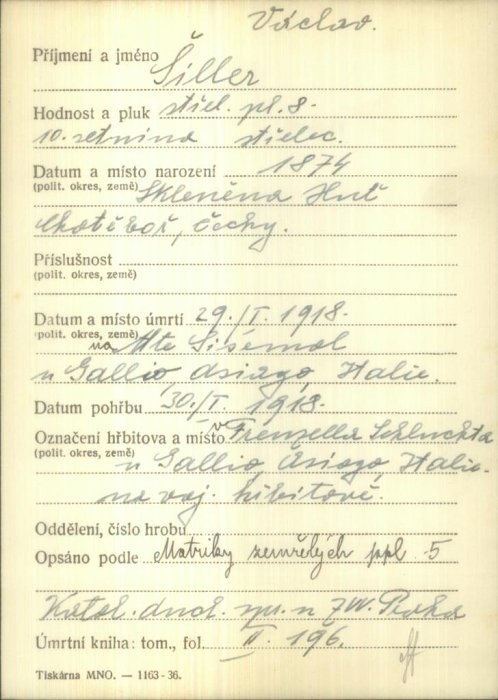 Václav.
Příjmení a jméno Šiller
Hodnost a pluk střel. pl. 8.
10. setnina střelec.
Datum a místo narození 1874
(polit. okres, země) Skleněna Huť
Chotěboř, Čechy.
Příslušnost
(polit. okres, země)
Datum a místo úmrtí 29./I. 1918.
(polit. okres, země) na Mte Sisemol
u Gallio, Asiago, Italie.
Datum pohřbu 30./I. 1918.
Označení hřbitova a místo v Frenzella Schluchta
(polit. okres, země)
u Gallio, Asiago, Italie.
na voj. hřbitově.
Oddělení, číslo hrobu
Opsáno podle Matriky zemřelých ppl 5
Katol. duch. spr. u
Úmrtní kniha: tom., fol. II. 196.
Tiskárna MNO. — 1163-36.